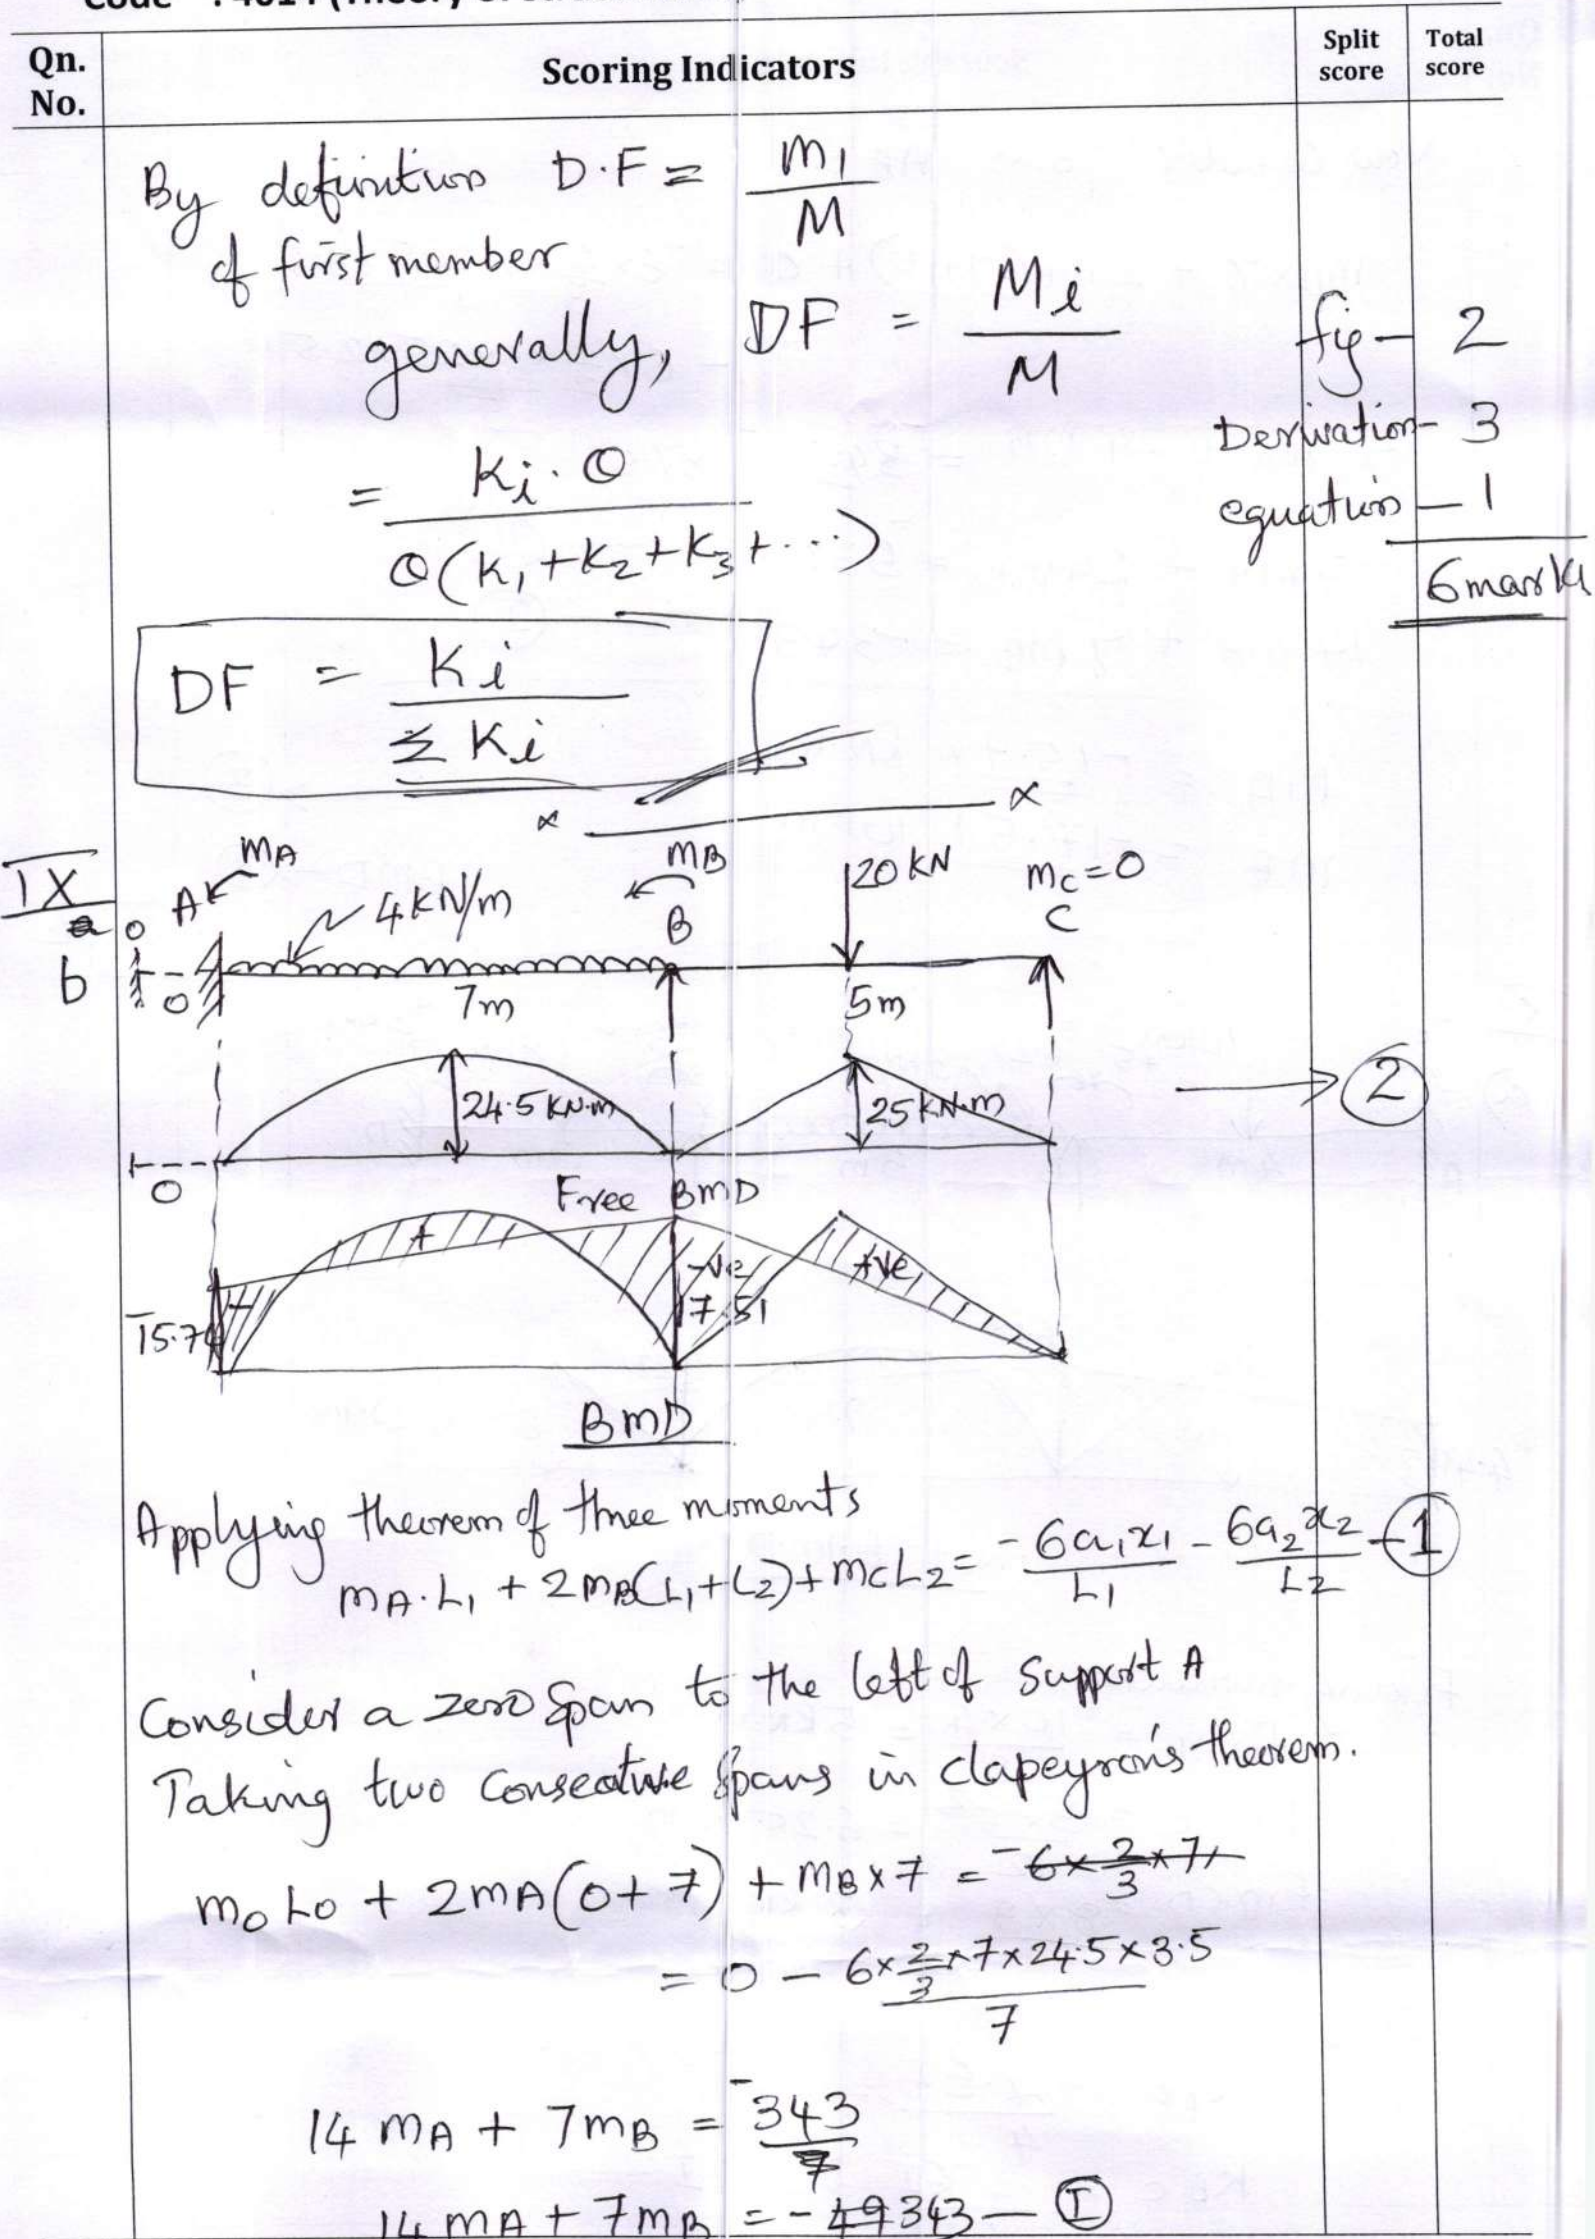 Qn. No.
Scoring Indicators
Split score
Total score
By definition D.F = m1 / M
of first member
generally, DF = Mi / M
fig - 2
Derivation - 3
= Ki · θ / θ(K1 + K2 + K3 + ...)
equation - 1
6 marks
DF = Ki / Σ Ki
x x
IX
b
MA
A
4 kN/m
MB
B
20 kN
mc = 0
C
0
0
7m
5m
24.5 kN.m
25 kN.m
2
0
Free BMD
+
-ve
+ve
-
17.51
BMD
Applying theorem of three moments
MA.L1 + 2MB(L1+L2) + McL2 = -6a1x1 / L1 - 6a2x2 / L2 - 1
Consider a zero span to the left of support A
Taking two consecative spans in clapeyron's theorem.
m0 L0 + 2mA(0+7) + MB x 7 = -6 x 2/3 x 7x
= 0 - 6 x 2/3 x 7 x 24.5 x 3.5 / 7
14 mA + 7mB = -343 / 7
14 mA + 7mB = -49 343 - I